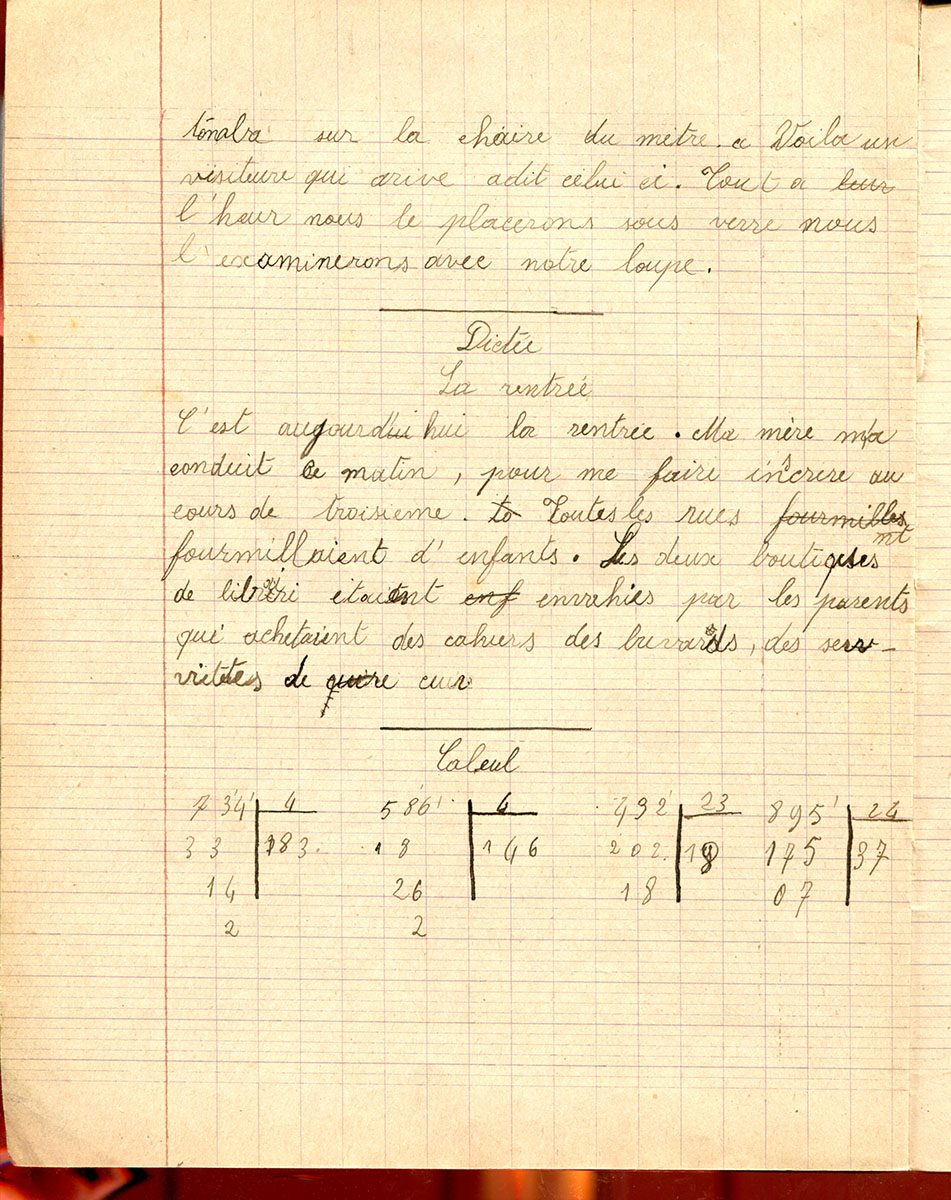 tonalra sur la chaire du metre. a Voila un
visiteure qui arive adit celui ci. Tout a leur
l'heur nous le placerons sous verre nous
l'examinerons avec notre loupe.
Dictée
La rentrée
C'est aujourd'hui la rentrée. Ma mère m'a
conduit ce matin, pour me faire inscrere au
cours de troisieme. to Toutes les rues fourmilles
fourmillaient d'enfants. Les deux boutiques
de librairi étaient enf envahies par les parents
qui achetaient des cahiers des buvards, des serv-
vittes de quire cuir
Calcul
734 4 586 4 492 23 895 24
33 183. 18 146 202. 19 175 37
14 26 18 07
2 2